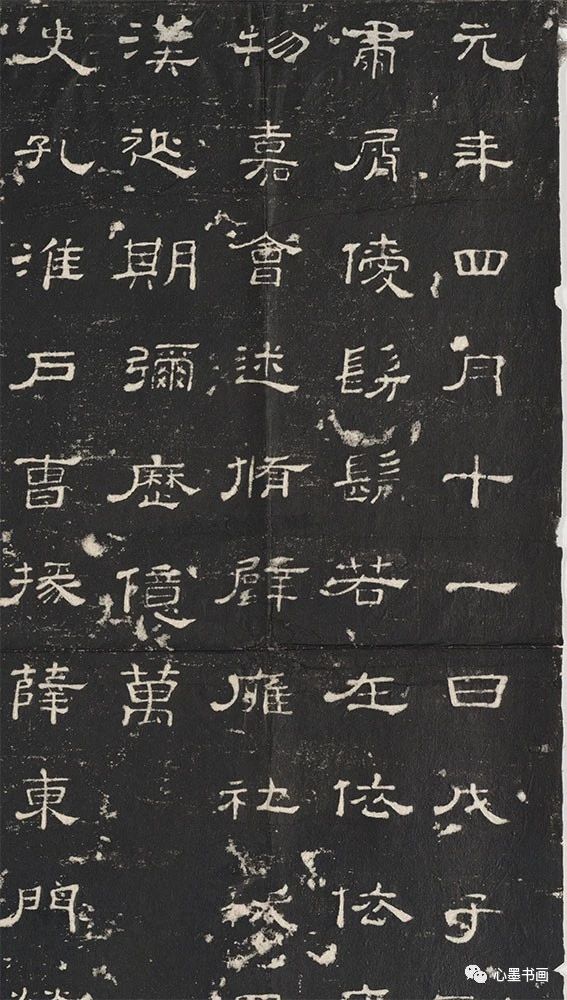 元年四月十一日戊子
肅屑僾髣髴若在依依
物嘉會述脩辟雍社
漢延期彌歷億萬
史孔淮戶曹掾薛東門
心墨书画